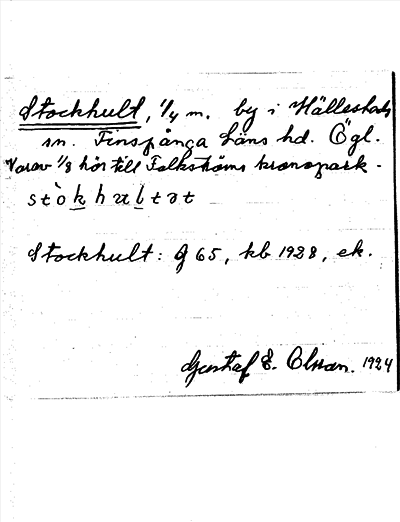 Stockhult, 1/4 m. by i Hällestads
sn. Finspånga Läns hd. Ögl.
Varav 1/8 hör till Folkströms kronopark.
stòkhultət
Stockhult: G 65, kb 1928, ek.
Gustaf E. Olsson. 1924